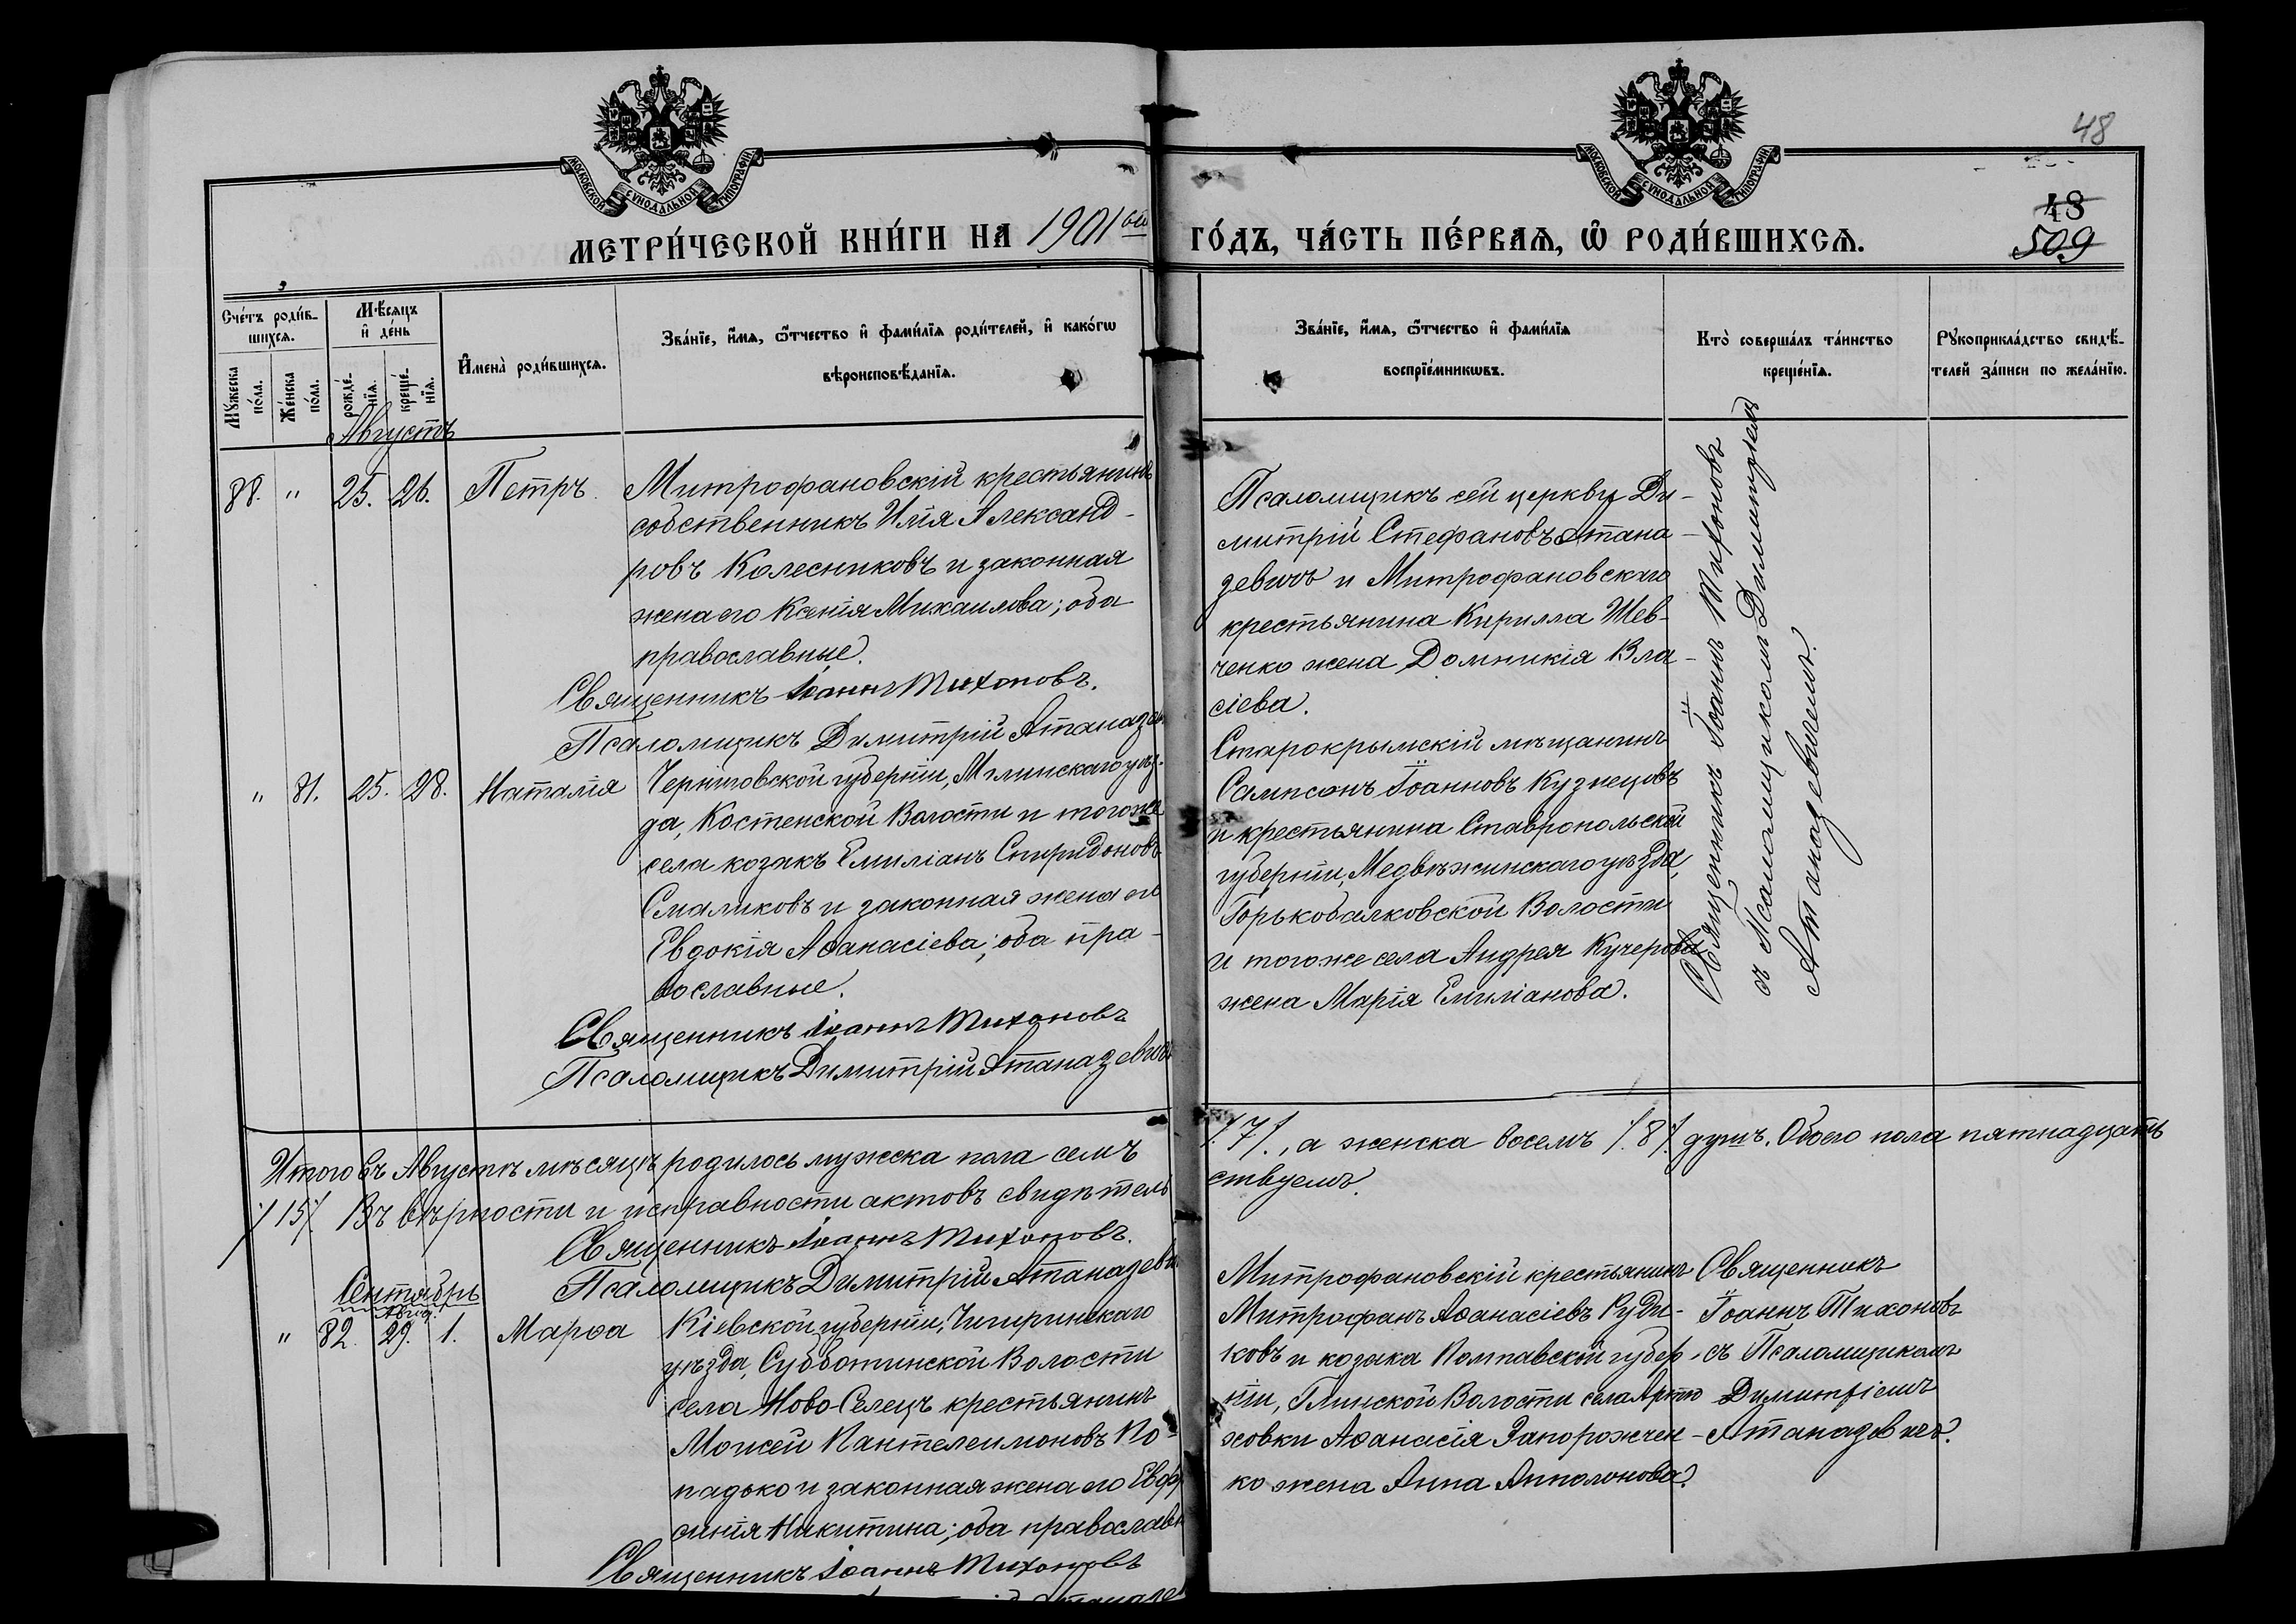 48
МОСКОВСКОЙ СѴНОДАЛЬНОЙ ТИПОГРАФІИ
МОСКОВСКОЙ СѴНОДАЛЬНОЙ ТИПОГРАФІИ
48
509
МЕТРИ́ЧЕСКОЙ КНИ́ГИ НА 1901ый ГО́ДЪ, ЧА́СТЬ ПЕ́РВАЯ, Ѡ҆ РОДИ́ВШИХСЯ.
Сче́тъ роди́в-
шихся.
Му́жеска по́ла.
Же́нска по́ла.
Мѣ́сяцъ
и҆ де́нь
рожде́-
нїя.
креще́-
нїя.
И҆мена̀ роди́вшихся.
Зва́нїе, и҆́мя, ѻ҆́тчество и҆ фами́лїя роди́телей, и҆ како́гѡ
вѣроисповѣ́данїя.
Зва́нїе, и҆́мя, ѻ҆́тчество и҆ фами́лїя
воспрїе́мникѡвъ.
Кто̀ соверша́лъ та́инство
креще́нїя.
Рꙋкоприкла́дство свидѣ́-
телей за́писи по жела́нїю.
Августъ
88. " 25. 26. Петръ.
Митрофановскій крестьянинъ
собственникъ Илія Александ-
ровъ Колесниковъ и законная
жена его Ксенія Михаилова; оба
православные.
Священникъ Іоаннъ Тихоновъ.
Псаломщикъ Димитрій Атаназев
Псаломщикъ сей церкви Ди-
митрій Стефановъ Атана-
зевичъ и Митрофановскаго
крестьянина Кирилла Шев-
ченко жена Домникія Вла-
сіева.
Священникъ Іоаннъ Тихоновъ
съ Псаломщикомъ Димитріемъ
Атаназевичемъ.
" 81. 25. 28. Наталія
Черниговской губерніи, Мглинскаго уѣз-
да, Костенской Волости и того же
села козакъ Емиліанъ Спиридоновъ
Смаликовъ и законная жена его
Евдокія Аѳанасіева; оба пра-
вославные.
Священникъ Іоаннъ Тихоновъ
Псаломщикъ Димитрій Атаназевичъ
Старокрымскій мѣщанинъ
Сампсонъ Іоанновъ Кузнецовъ
и крестьянина Ставропольской
губерніи, Медвѣжинскаго уѣзда,
Горькобалковской Волости
и того же села Андрея Кучерова
жена Марія Емиліанова.
Итого въ Августѣ мѣсяцѣ родилось мужска пола семъ /.7/., а женска восемъ /.8/. душъ. Обоего пола пятнадцать
/15/. Въ вѣрности и исправности актовъ свидѣтельствуемъ.
Священникъ Іоаннъ Тихоновъ.
Псаломщикъ Димитрій Атаназеви
Сентябрь
Авгус.
" 82. 29. 1. Марѳа
Кіевской губерніи, Чигиринскаго
уѣзда, Субботинской Волости
села Ново-Селецъ крестьянинъ
Моисей Пантелеимоновъ По-
падько и законная жена его Евфро
синія Никитина; оба православн
Священникъ Іоаннъ Тихоновъ
Митрофановскій крестьянинъ
Митрофанъ Аѳанасіевъ Руди-
ковъ и козака Полтавской губер-
ніи, Глинской Волости села Артю
ховки Аѳанасія Запорожчен-
ко жена Анна Апполонова.
Священникъ
Іоаннъ Тихоновъ
съ Псаломщикомъ
Димитріемъ
Атаназевичъ.